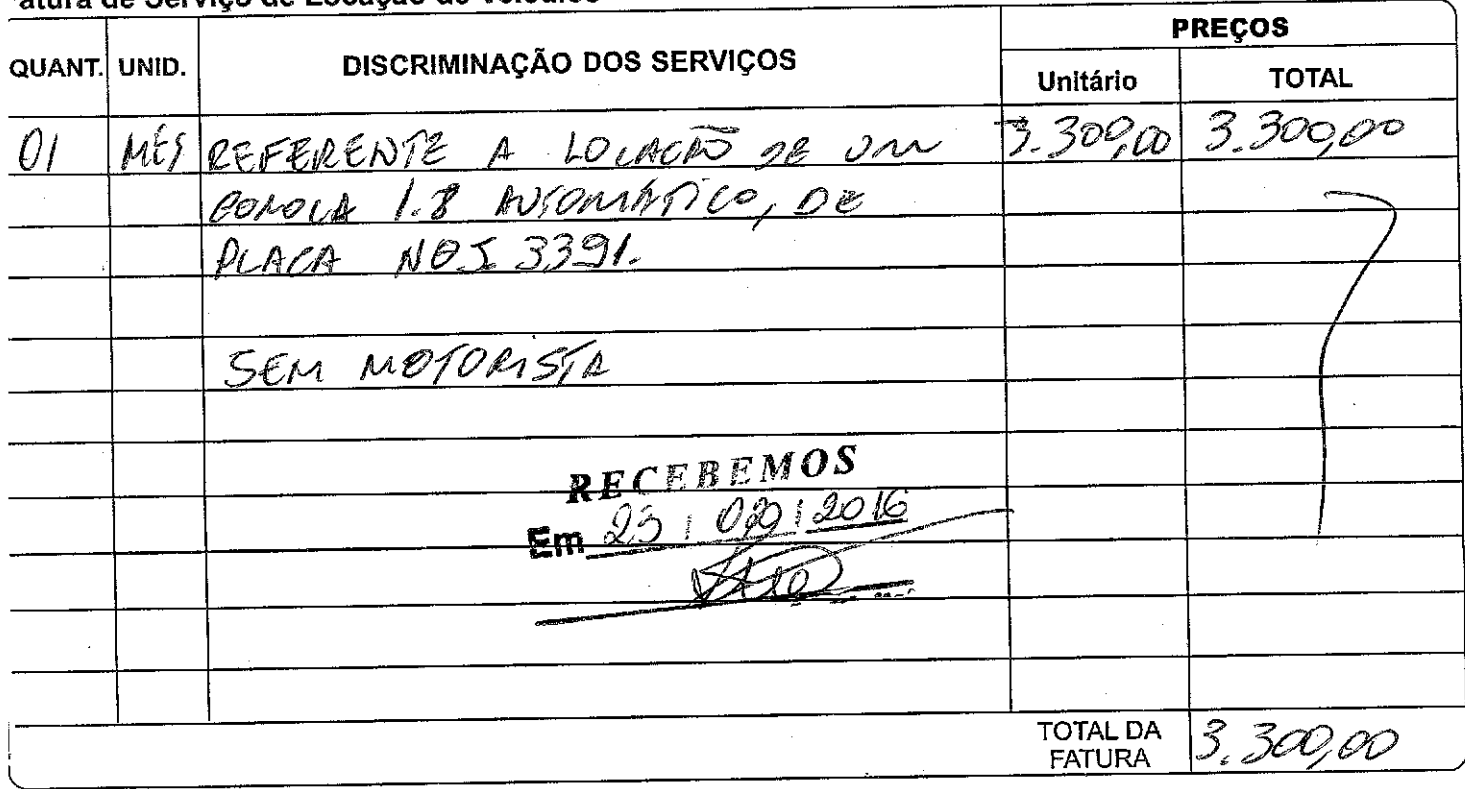 atura de Serviço de Locação de Veículos
PREÇOS
QUANT. UNID. DISCRIMINAÇÃO DOS SERVIÇOS Unitário TOTAL
01 MÊS REFERENTE A LOCAÇÃO DE UM 3.300,00 3.300,00
COROLA 1.8 AUTOMÁTICO, DE
PLACA 3391.
SEM MOTORISTA
RECEBEMOS
Em 23 2016
TOTAL DA FATURA 3.300,00